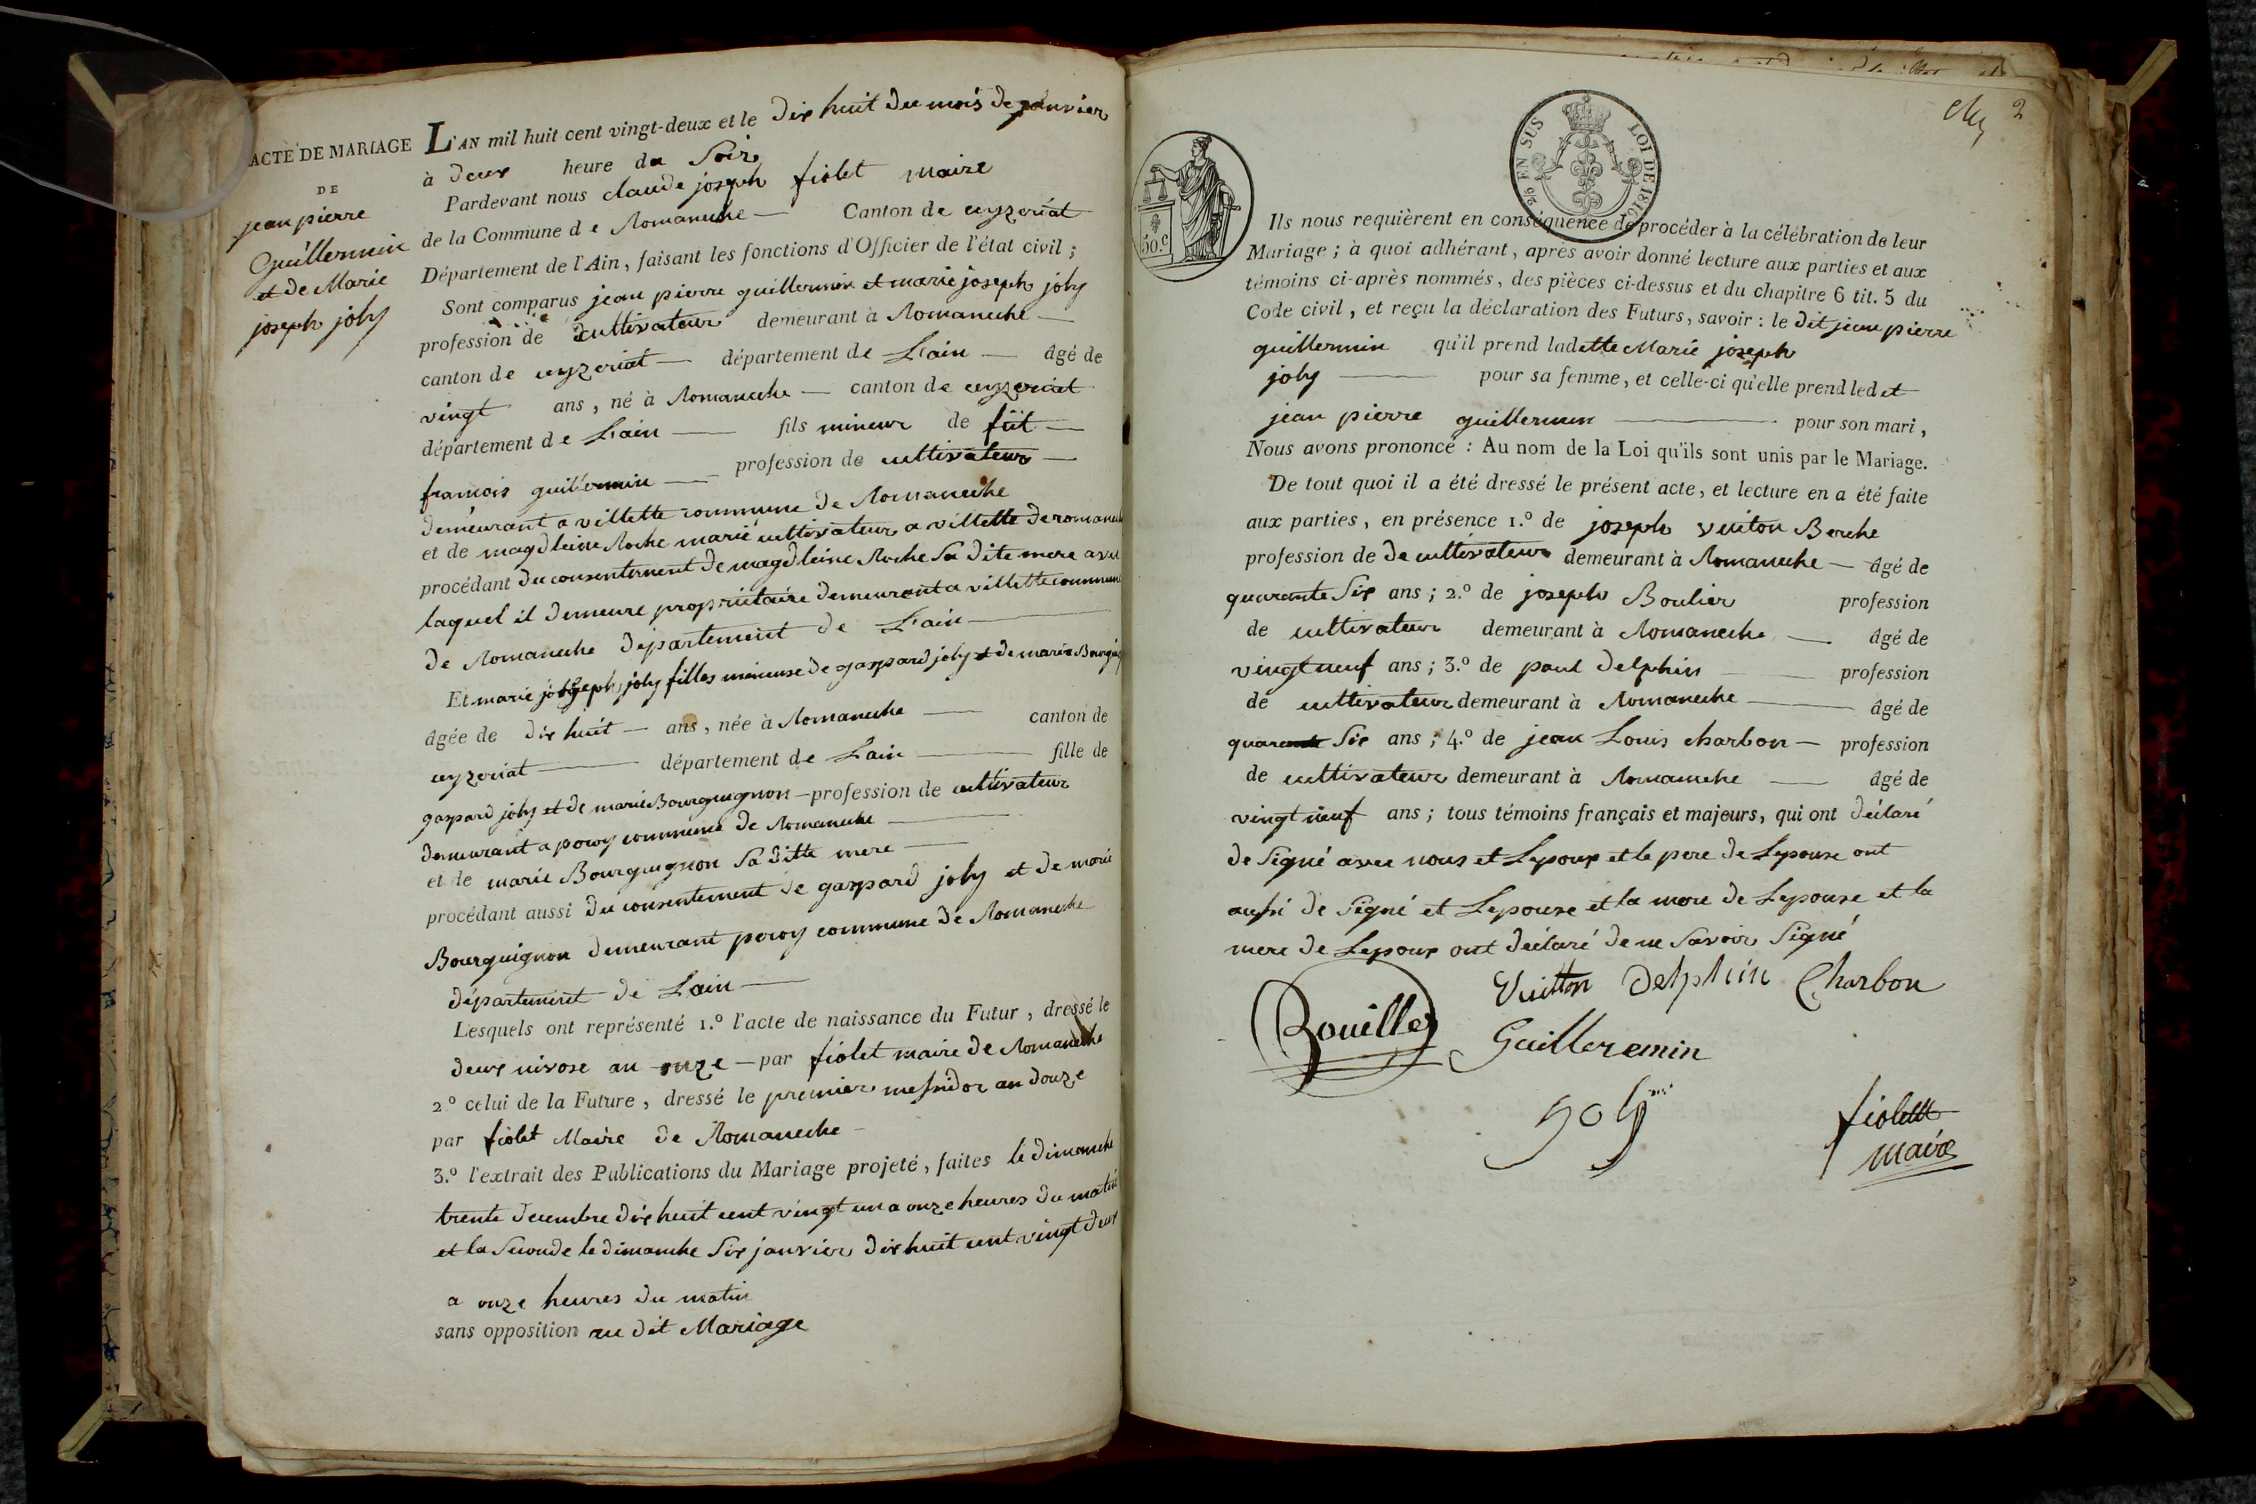 ACTE DE MARIAGE
DE
jean pierre
Guillermin
et de Marie
joseph joly
L'AN mil huit cent vingt-deux et le dix huit du mois de janvier
à deux heure du Soir
Pardevant nous claude joseph fiolet maire
de la Commune de Romaneche — Canton de ceyzeriat
Département de l'Ain, faisant les fonctions d'Officier de l'état civil ;
Sont comparus jean pierre guillermin et marie joseph joly
profession de cultivateur demeurant à Romaneche —
canton de ceyzeriat — département de Lain — âgé de
vingt ans, né à Romaneche — canton de ceyzeriat
département de Lain — fils mineur de füt —
francois guillermin — profession de cultivateur —
demeurant a villette commune de Romaneche
et de magdleine Roche marié cultivateur a villette de romaneche
procédant du consentement de magdleine Roche Sa dite mere avec
laquel il demeure propriétaire demeurant a villette commune
de Romaneche département de Lain —
Et marie joseph joly filles mineuse de gaspard joly et de marie Bourguignon
âgée de dix huit — ans, née à Romaneche — canton de
ceyzeriat — département de Lain — fille de
gaspard joly et de marie Bourguignon — profession de cultivateur
demeurant a commune de Romaneche —
et de marie Bourguignon Sa ditte mere —
procédant aussi du consentement de gaspard joly et de marie
Bourguignon demeurant commune de Romaneche
département de Lain —
Lesquels ont représenté 1.º l'acte de naissance du Futur, dressé le
deux nivose an onze — par fiolet maire de Romaneche
2.º celui de la Future, dressé le premier messidor an douze
par fiolet Maire de Romaneche —
3.º l'extrait des Publications du Mariage projeté, faites le dimanche
trente decembre dix huit cent vingt un a onze heures du matin
et la Seconde le dimanche Six janvier dix huit cent vingt deux
a onze heures du matin
sans opposition au dit Mariage
2
EN SUS LOI DE 1816
50.c
Ils nous requièrent en conséquence de procéder à la célébration de leur
Mariage ; à quoi adhérant, après avoir donné lecture aux parties et aux
témoins ci-après nommés, des pièces ci-dessus et du chapitre 6 tit. 5 du
Code civil, et reçu la déclaration des Futurs, savoir : le dit jean pierre
guillermin qu'il prend ladette Marie joseph
joly — pour sa femme, et celle-ci qu'elle prend ledet
jean pierre guillermin — pour son mari,
Nous avons prononcé : Au nom de la Loi qu'ils sont unis par le Mariage.
De tout quoi il a été dressé le présent acte, et lecture en a été faite
aux parties, en présence 1.º de joseph vuiton Berche
profession de de cultivateur demeurant à Romaneche — âgé de
quarante Six ans ; 2.º de joseph Boulier profession
de cultivateur demeurant à Romaneche — âgé de
vingt neuf ans ; 3.º de paul delphin — profession
de cultivateur demeurant à Romaneche — âgé de
quarente Six ans ; 4.º de jean Louis charbon — profession
de cultivateur demeurant à Romaneche — âgé de
vingt neuf ans ; tous témoins français et majeurs, qui ont déclaré
de Signé avec nous et Lepoux et le pere de Lepouse ont
aussi de Signé et Lepouse et la mere de Lepouse et la
mere de Lepoux ont déclaré de ne Savoir Signé
Vuitton Delphin Charbon
Bouillez Guilleremin
Joly
fiolett
maire